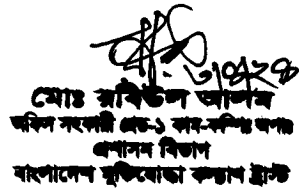 মোঃ রবিউল আলম
অফিস সহকারী গ্রেড-১ কাম-কম্পিঃ অপাঃ
প্রশাসন বিভাগ
বাংলাদেশ মুক্তিযোদ্ধা কল্যাণ ট্রাস্ট